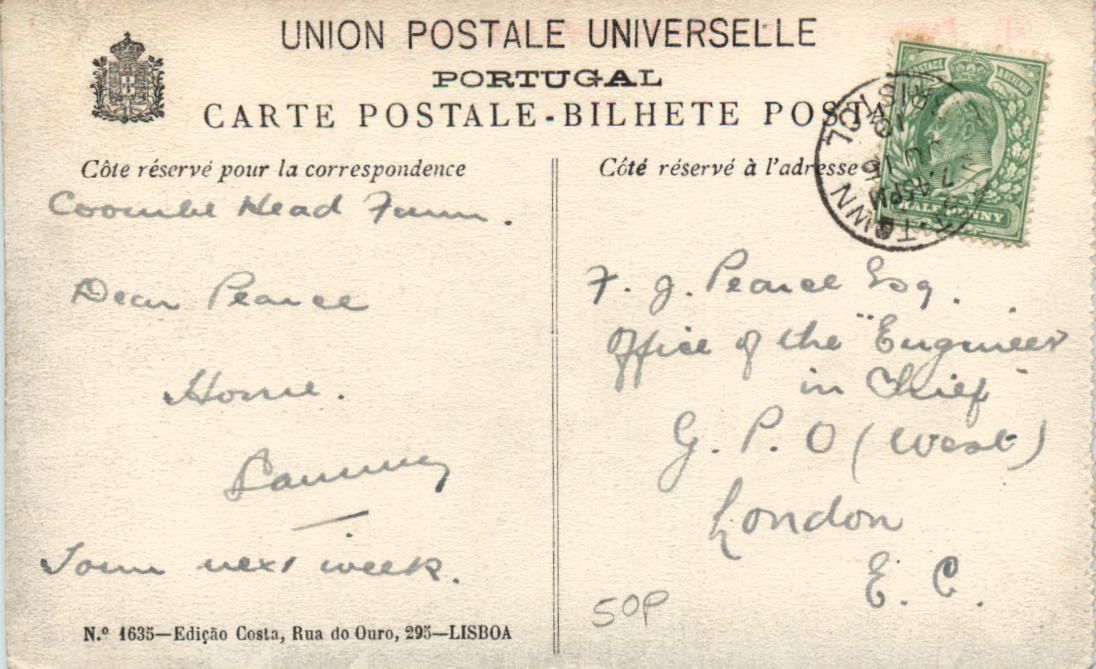 UNION POSTALE UNIVERSELLE
PORTUGAL
CARTE POSTALE-BILHETE POSTAL
Côte réservé pour la correspondence
Coombe Head Farm.
Dear Pearce
Home.
Town next week.
N.º 1635—Edição Costa, Rua do Ouro, 295—LISBOA
Côté réservé à l'adresse
F. J. Pearce Esq.
Office of the "Engineer
in Chief"
G. P. O (West)
London
E. C.
50P
POSTAGE
HALF PENNY
BRISTOL
7.45PM
JU 15